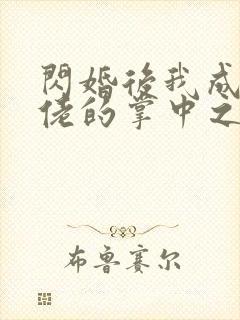 閃婚後我成
佬的掌中之
布鲁赛尔